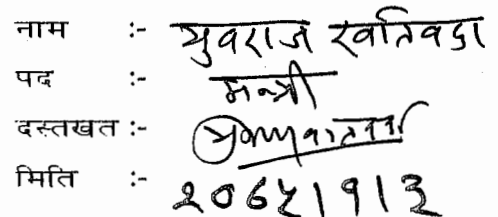 नाम :- युवराज खतिवडा
पद :- मन्त्री
दस्तखत :-
मिति :- २०७५।१।३